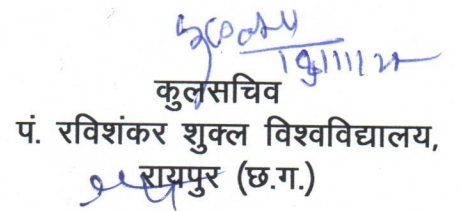 कुलसचिव
पं. रविशंकर शुक्ल विश्वविद्यालय,
रायपुर (छ.ग.)